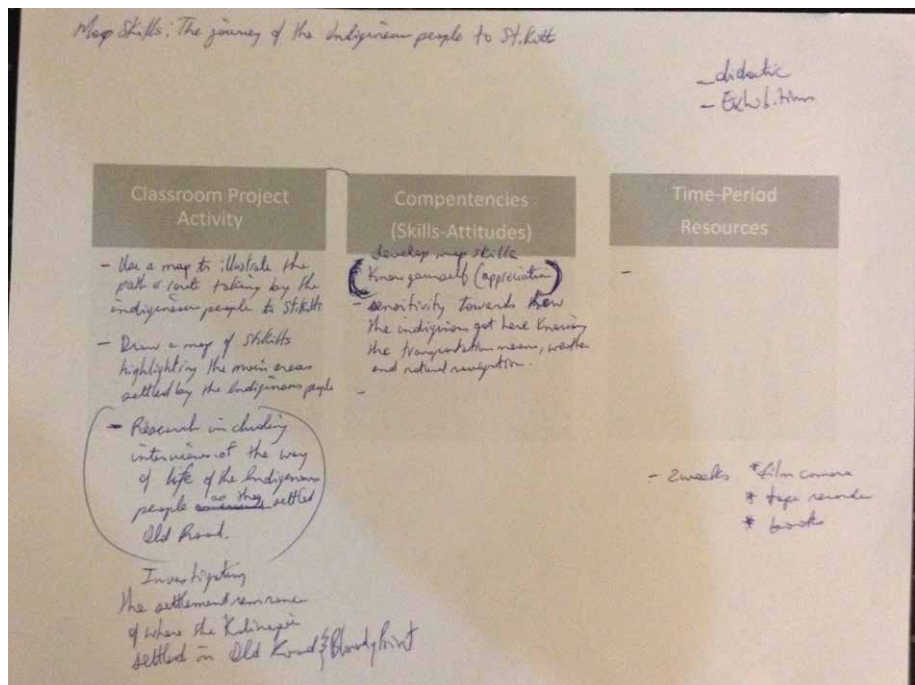 Map Skills: The journey of the Indigineous people to St.Kitt
- didactic
- Exhibition
Classroom Project
Activity
- Use a map to illustrate the
path or route taking by the
indigineous people to St.Kitts
- Draw a map of St.Kitts
highlighting the main areas
settled by the Indigineous people
- Research including
interviews of the way
of life of the Indigenous
people as they settled
Old Road.
Investigating
the settlement
of where the Kalinagos
settled in Old Road & Bloody Point
Compentencies
(Skills-Attitudes)
develop map skills
Know yourself (appreciation)
- sensitivity towards how
the indiginous got here knowing
the transportation means, weather
and natural navigation.
-
Time-Period
Resources
-
- 2 weeks * film camera
* tape recorder
* books